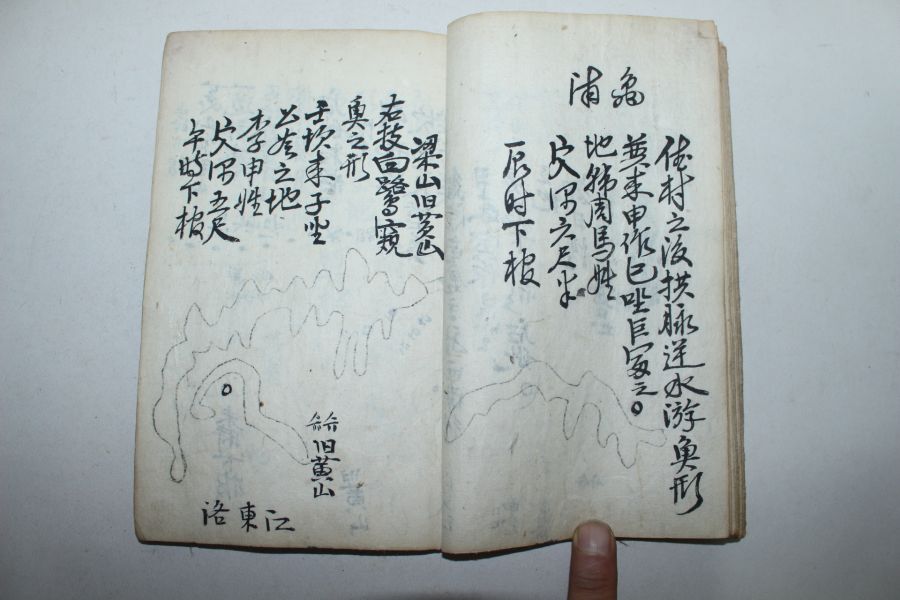 龜浦
佳村之後拱脉逆水游魚形
來申作巳坐巨富之
地 周馬姓
穴深六尺半
辰时下棺
梁山旧黃山
右枝向鷺窺
魚之形
壬坎来子坐
之地
李申姓
穴深五尺
午時下棺
旧黃山
洛東江